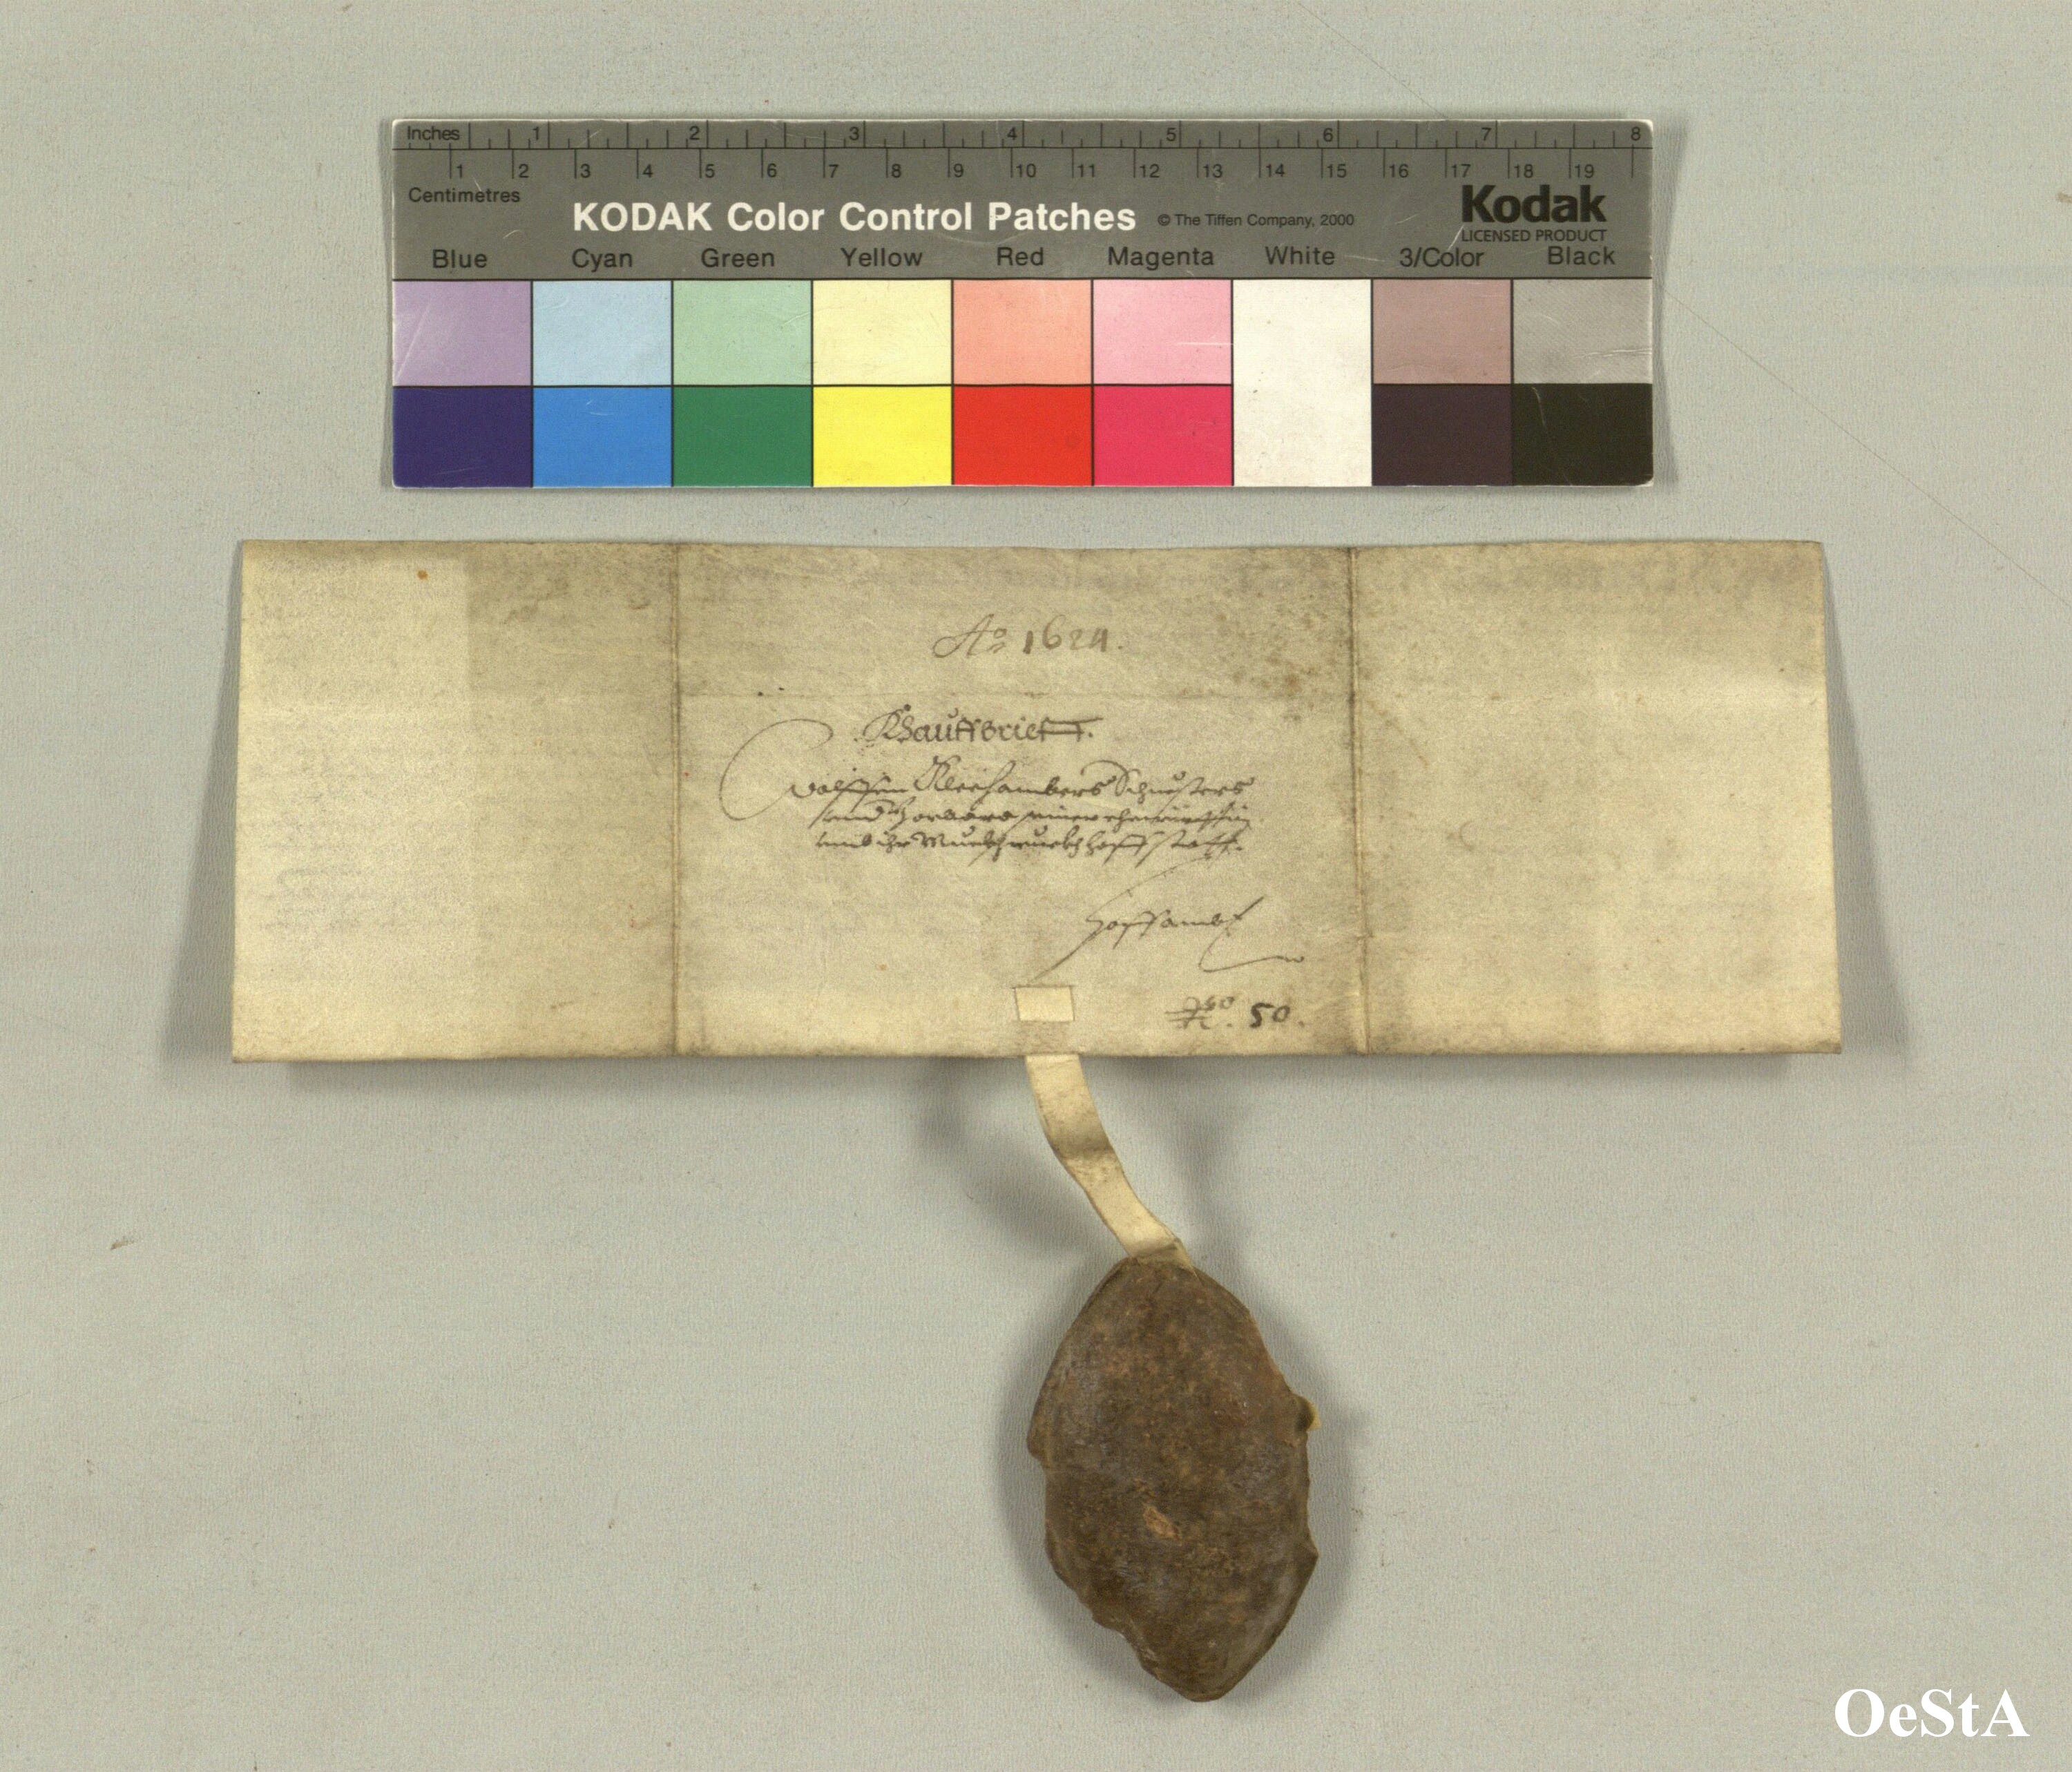 Inches 1 2 3 4 5 6 7 8
1 2 3 4 5 6 7 8 9 10 11 12 13 14 15 16 17 18 19
Centimetres
KODAK Color Control Patches © The Tiffen Company, 2000 Kodak
LICENSED PRODUCT
Blue Cyan Green Yellow Red Magenta White 3/Color Black
Ao 1624.
Khauffbrief.
Wolffen Schuesters
und
umb ihr hoffstatt.
Hoffambt
No. 50.
OeStA